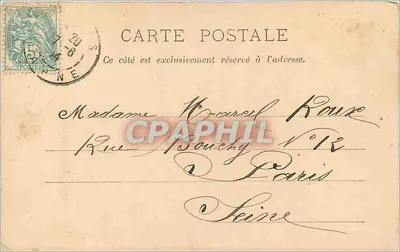 CARTE POSTALE
Ce côté est exclusivement réservé à l'adresse.
Madame Marcel Roux
Rue Bouchy N° 12
Paris
Seine
CPAPHIL